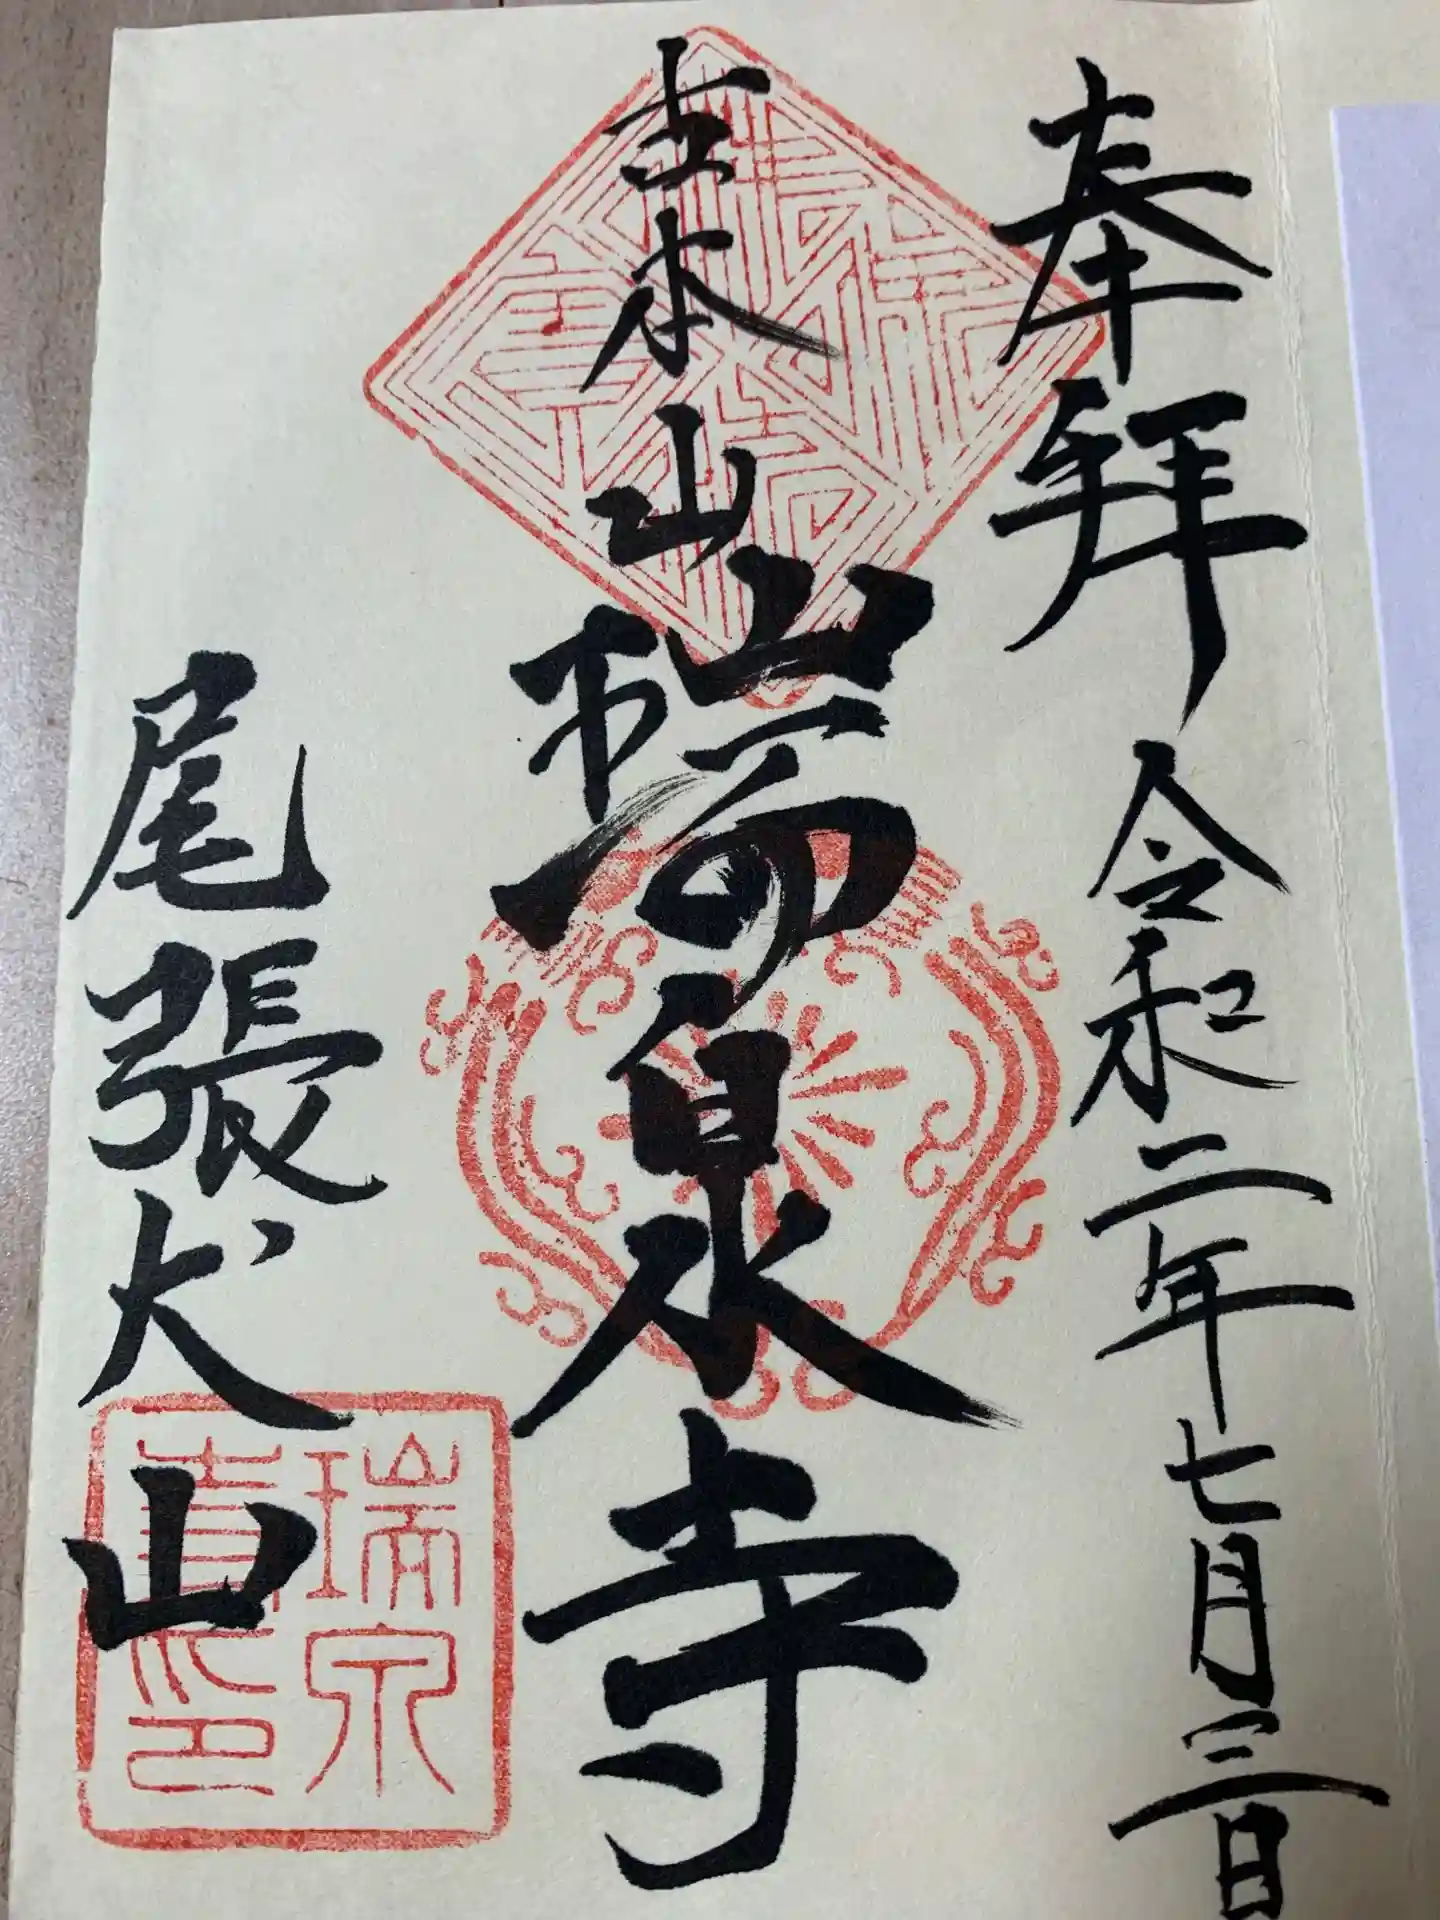 奉拝 令和二年七月三日
山
瑞泉寺
尾張犬山
瑞泉
印